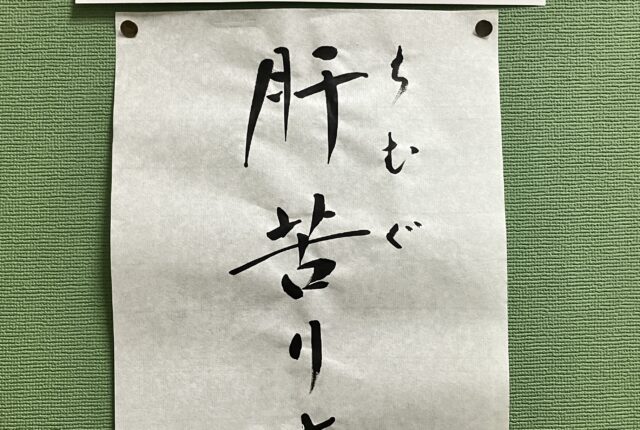 ちむぐ
肝苦り